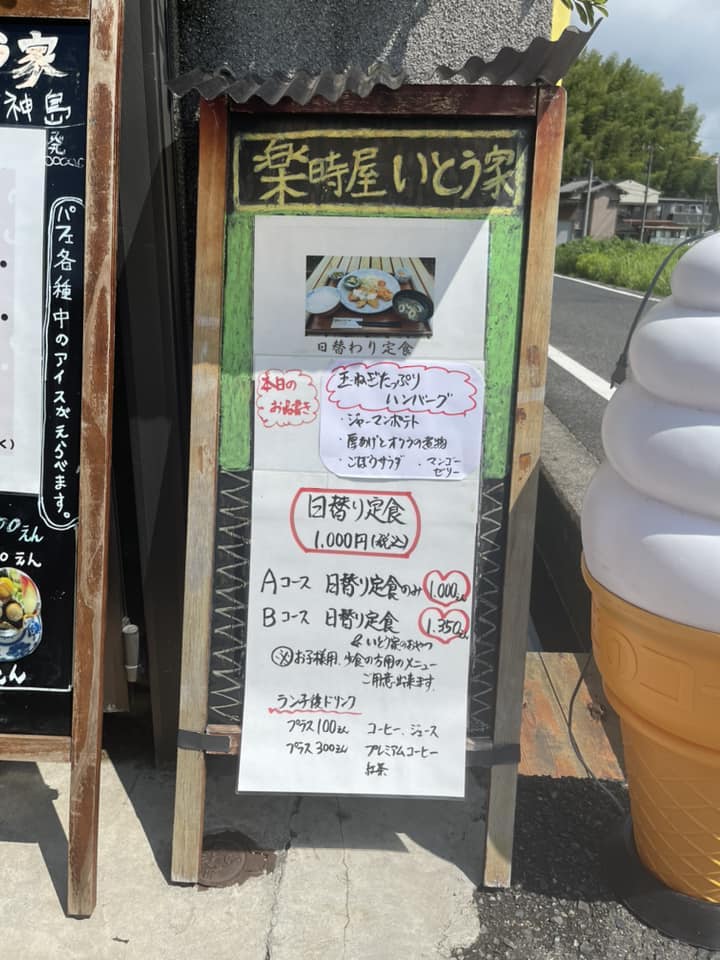 家
神島
発
パフェ各種中のアイスがえらべます。
えん
0えん
えん
楽時屋いとう家
日替わり定食
本日の
お品書き
玉ねぎたっぷり
ハンバーグ
・ジャーマンポテト
・厚あげとオクラの煮物
・ごぼうサラダ ・マンゴー
ゼリー
日替り定食
1.000円(税込)
Aコース 日替り定食のみ 1.000えん
Bコース 日替り定食 1.350えん
& いとう家のおやつ
※お子様用、少食の方用のメニュー
ご用意出来ます。
ランチ後ドリンク
プラス100えん コーヒー、ジュース
プラス300えん プレミアムコーヒー
紅茶